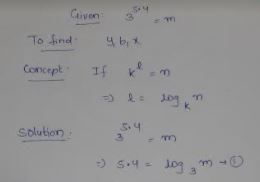 Given: 3^5.4 = m
To find: y, b, x
Concept: If k^l = n
=> l = log_k n
Solution: 3^5.4 = m
=> 5.4 = log_3 m → ①